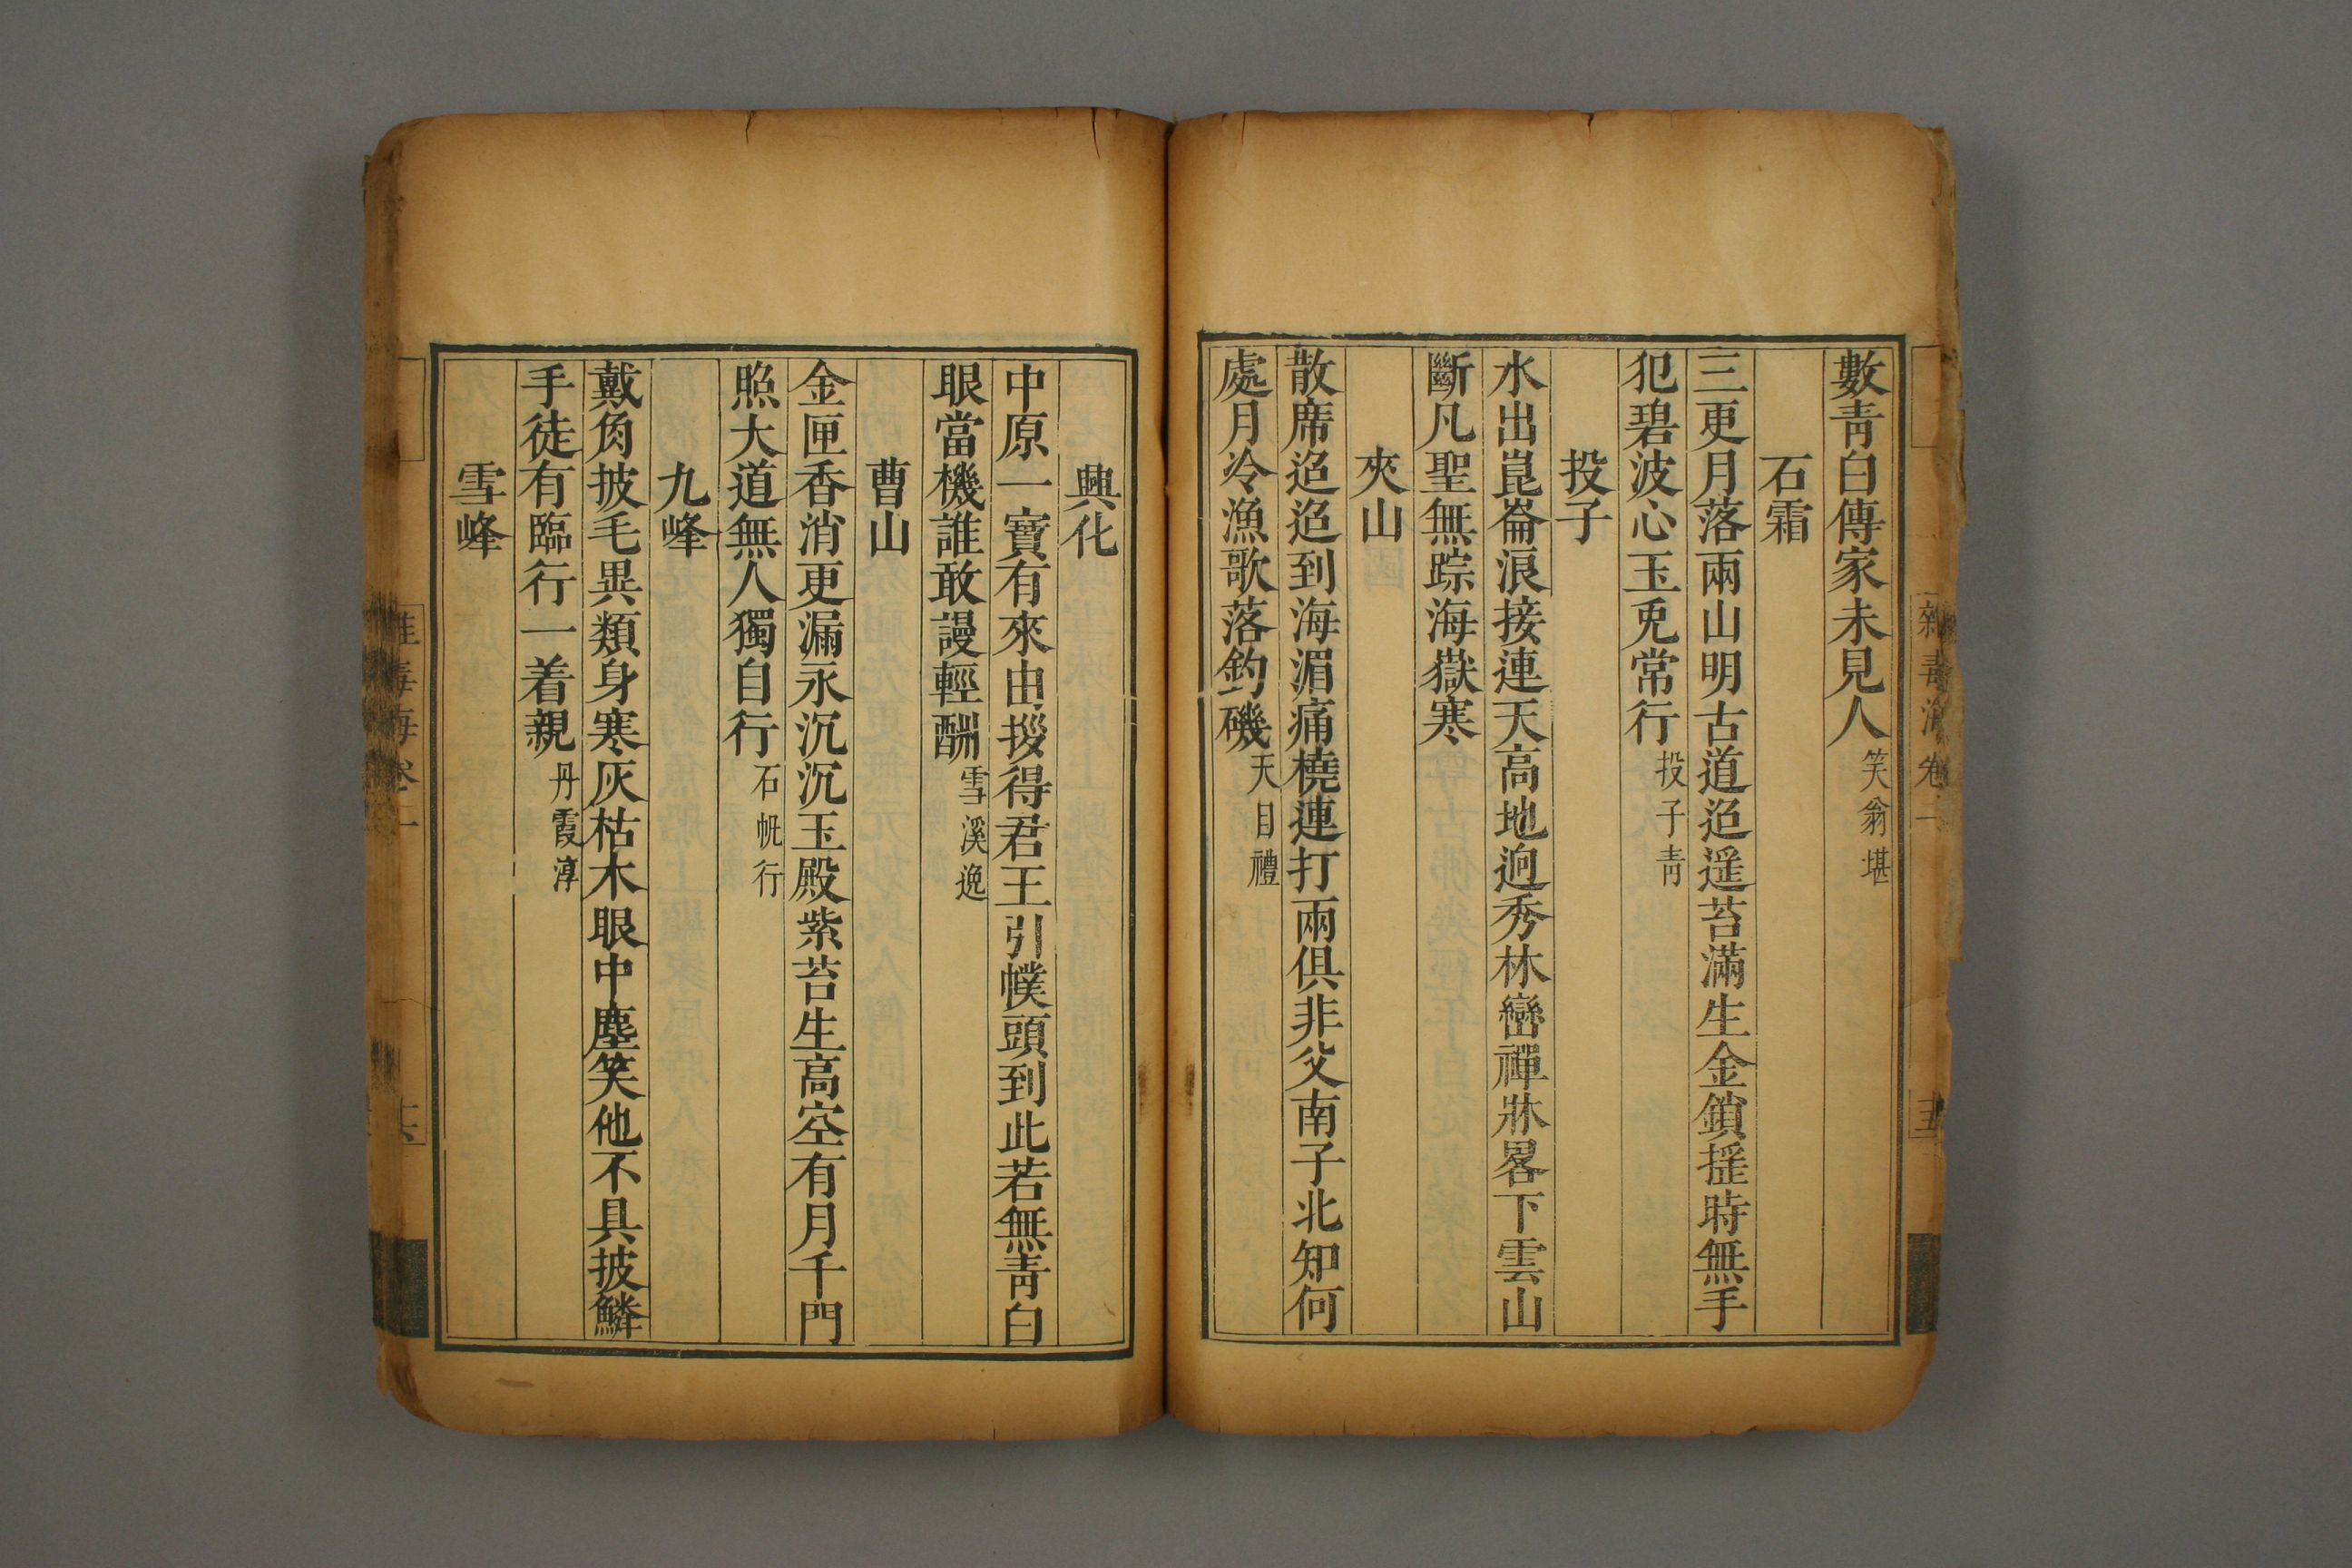 數靑白傳家未見人笑翁堪
石霜
三更月落兩山明古道迢遥苔滿生金鎖摇時無手
犯碧波心玉兎常行投子靑
投子
水出崑崙浪接連天高地逈秀林巒禪牀畧下雲山
斷凡聖無踪海嶽寒
夾山
散席迢迢到海湄痛橈連打兩俱非父南子北知何
處月冷漁歌落釣磯天目禮
興化
中原一寶有來由撥得君王引幞頭到此若無靑白
眼當機誰敢謾輕酬雪溪逸
曹山
金匣香消更漏永沉沉玉殿紫苔生高空有月千門
照大道無人獨自行石帆行
九峰
戴角披毛異類身寒灰枯木眼中塵笑他不具披鱗
手徒有臨行一着親丹霞淳
雪峰
雜毒海卷二